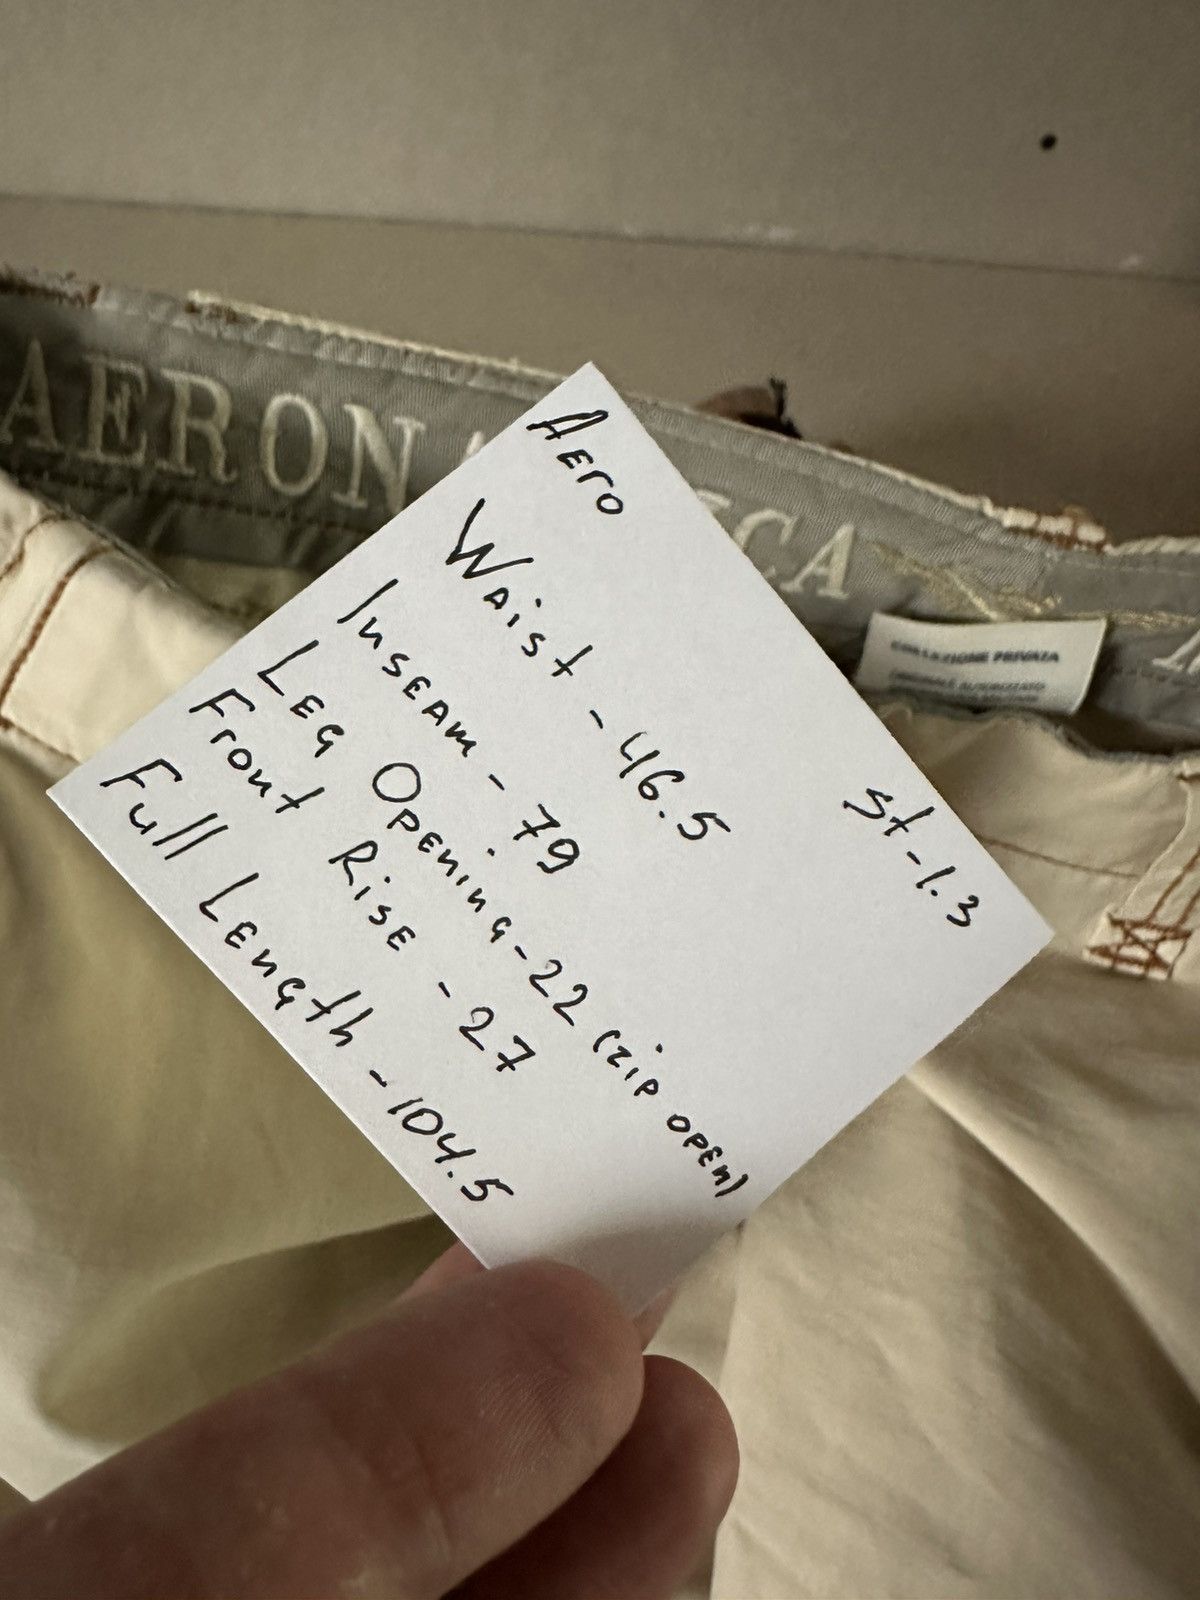 AERON
ICA
COLLAZIONE PRIVATA
Aero
Waist - 46.5
Inseam - 79
Leg Opening - 22 (zip open)
Front Rise - 27
Full Length - 104.5
st - 1.3